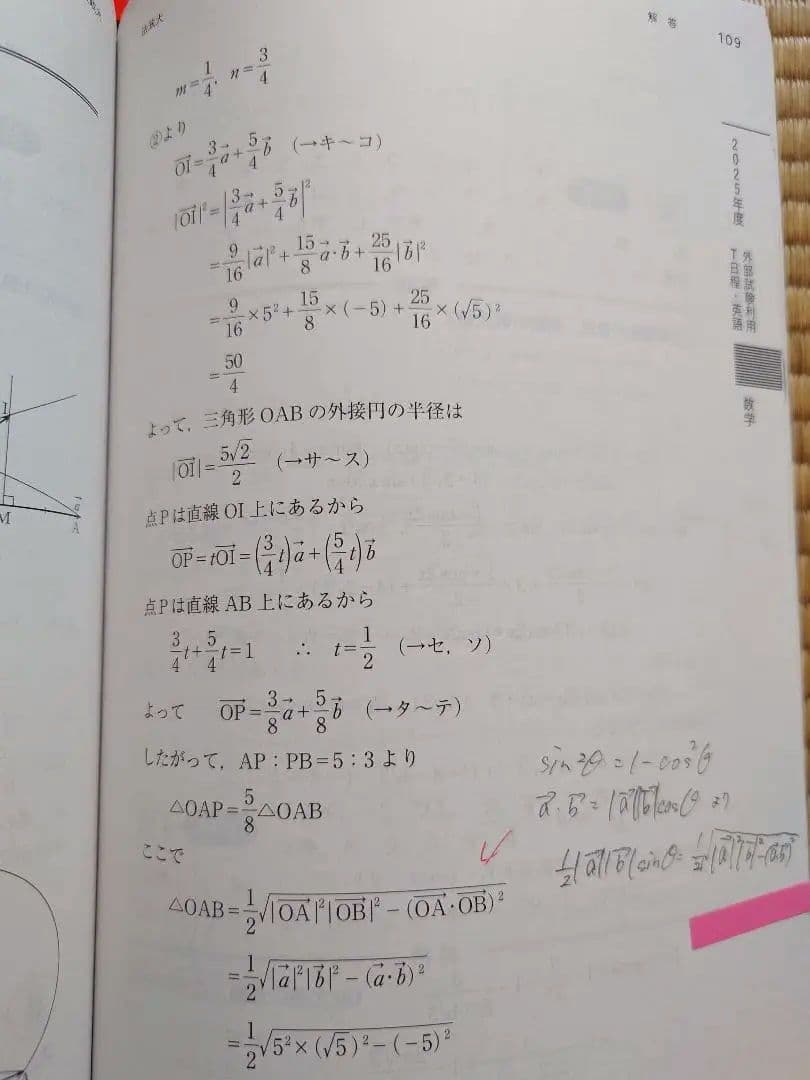 法政大
解答 109
2025年度 外部試験利用 T日程・英語 数学
m=1/4, n=3/4
②より
→OI=3/4→a+5/4→b (→キ~コ)
|→OI|²=|3/4→a+5/4→b|²
=9/16|→a|²+15/8→a・→b+25/16|→b|²
=9/16×5²+15/8×(-5)+25/16×(√5)²
=50/4
よって,三角形OABの外接円の半径は
|→OI|=5√2/2 (→サ~ス)
点Pは直線OI上にあるから
→OP=t→OI=(3/4t)→a+(5/4t)→b
点Pは直線AB上にあるから
3/4t+5/4t=1 ∴ t=1/2 (→セ,ソ)
よって →OP=3/8→a+5/8→b (→タ~テ)
したがって,AP:PB=5:3より
△OAP=5/8△OAB
ここで
△OAB=1/2√(|→OA|²|→OB|²-(→OA・→OB)²)
=1/2√(|→a|²|→b|²-(→a・→b)²)
=1/2√(5²×(√5)²-(-5)²)
sin²θ=1-cos²θ
→a・→b=|→a||→b|cosθ より
1/2|→a||→b|sinθ=1/2√(|→a|²|→b|²-(→a・→b)²)
I
M
→a
A